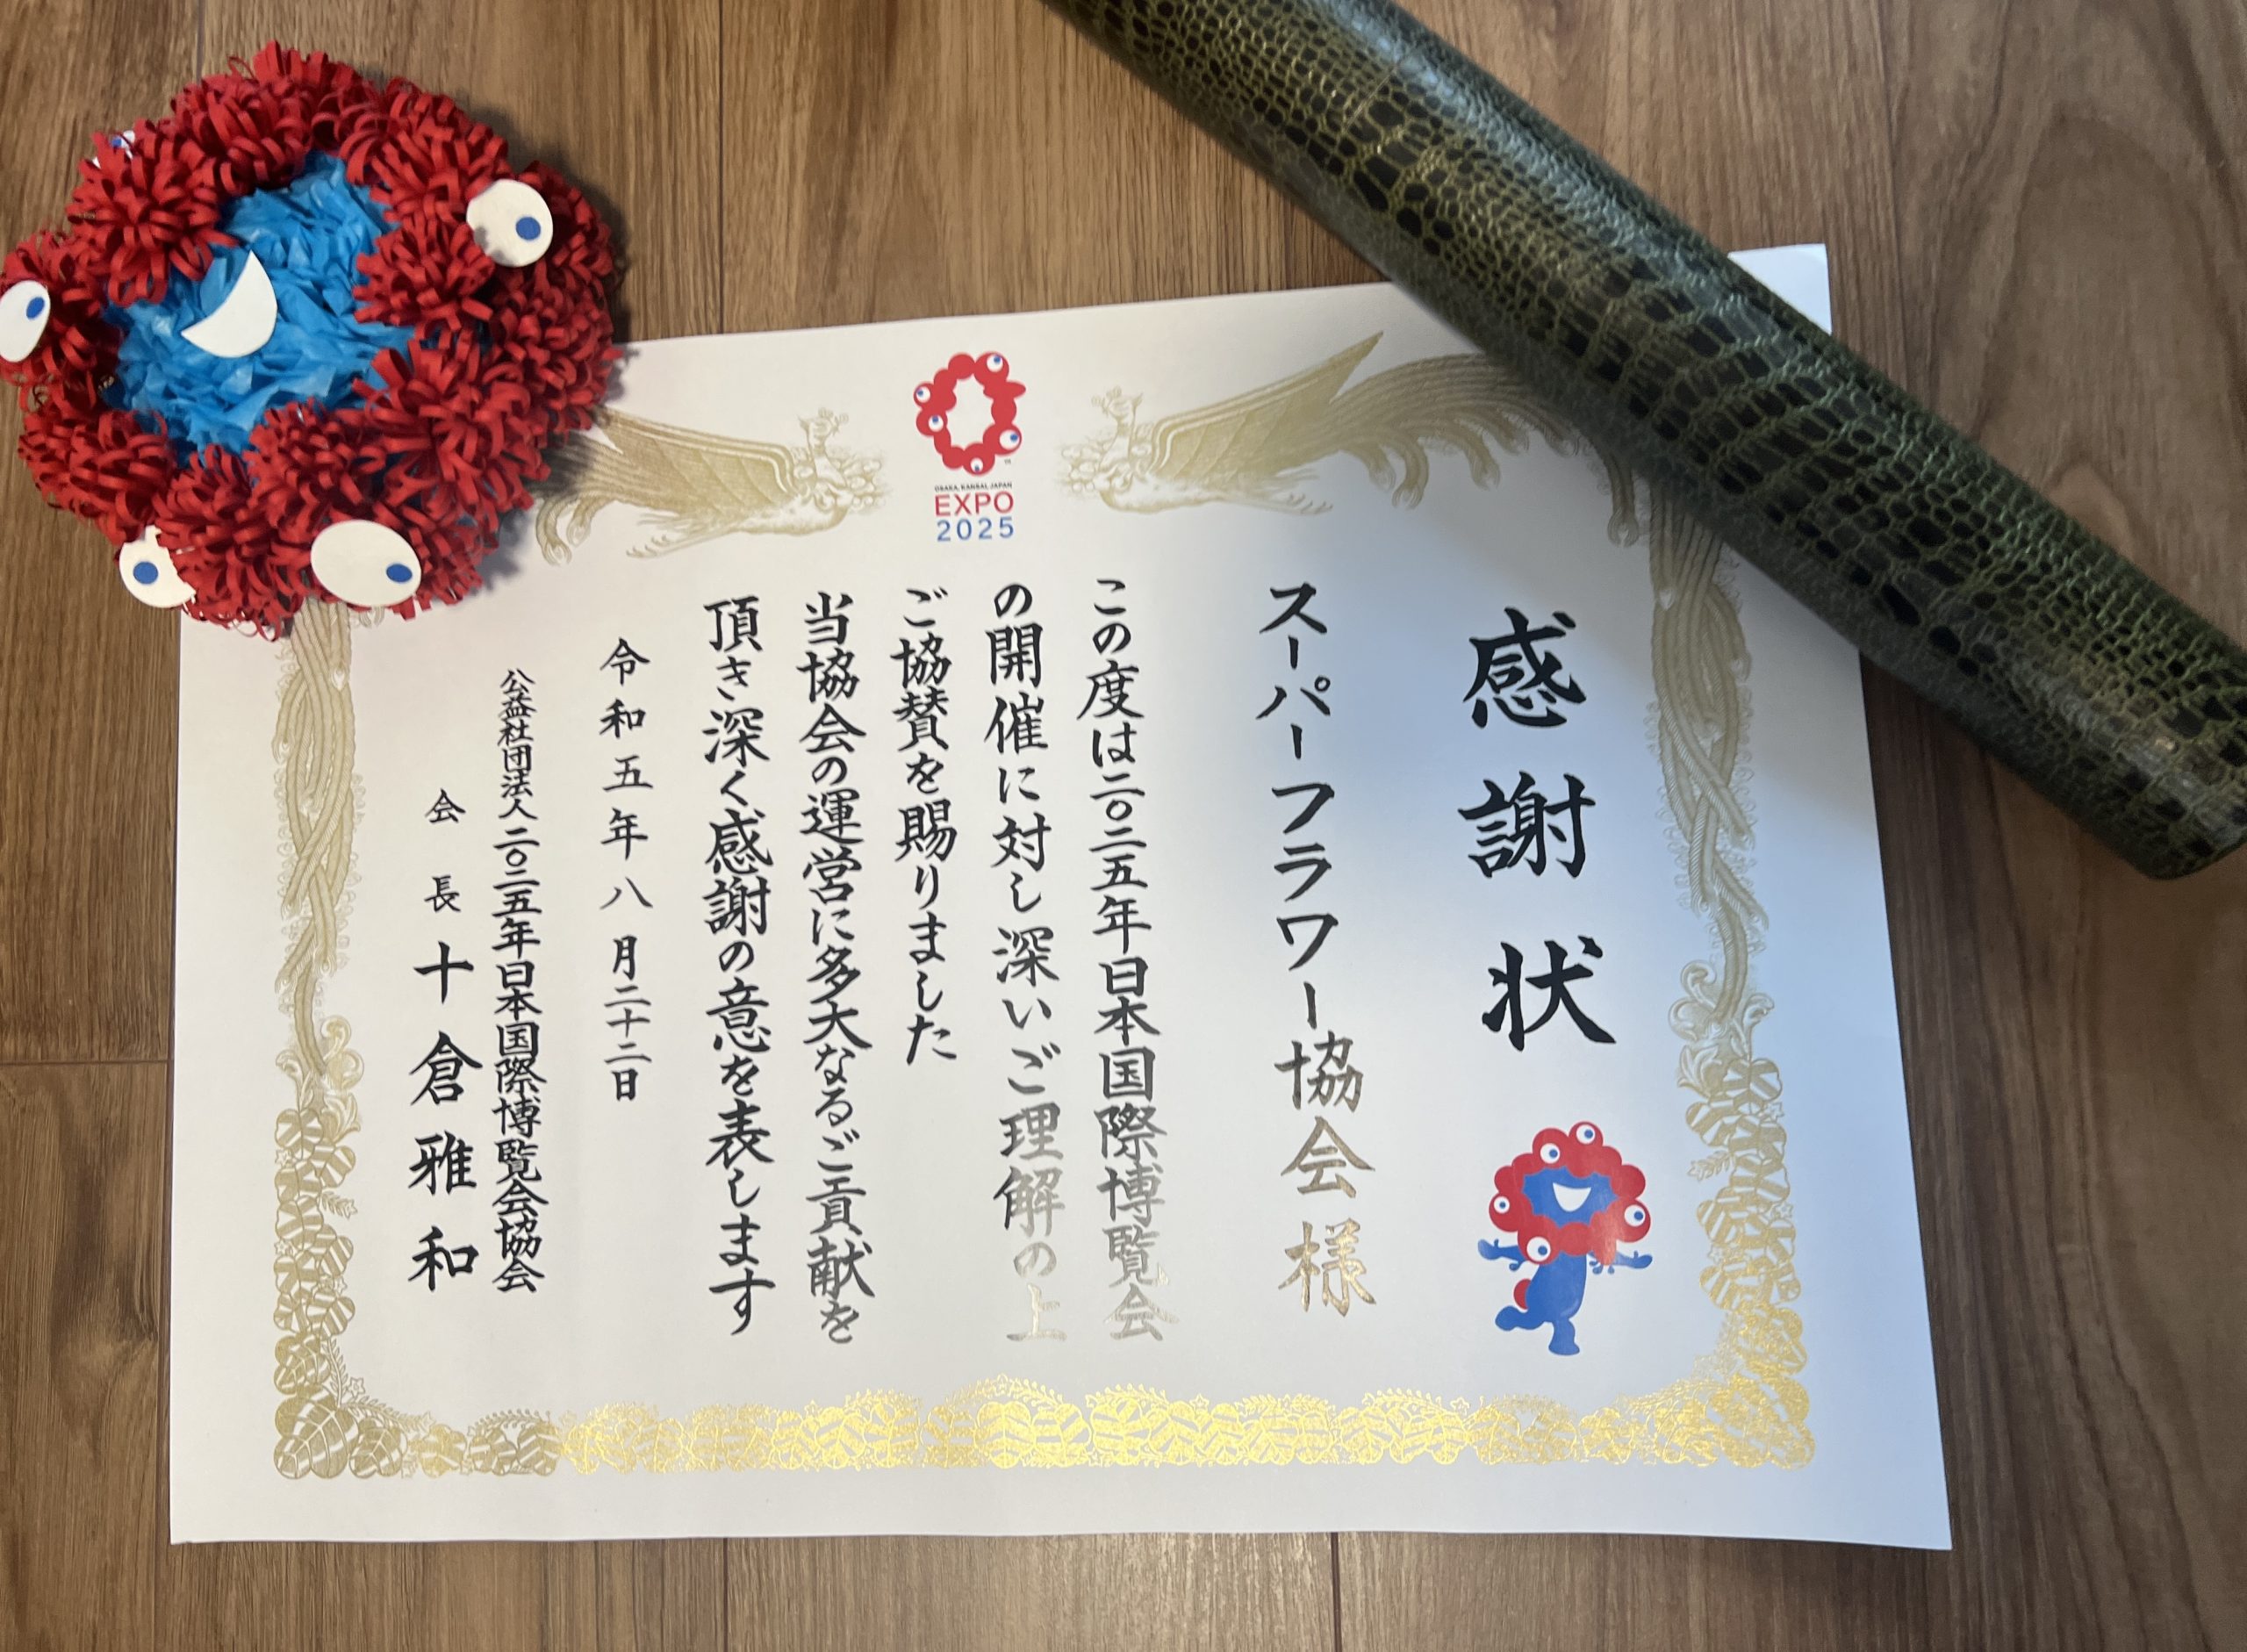 OSAKA, KANSAI, JAPAN
EXPO
2025
感謝状
スーパーフラワー協会様
この度は二〇二五年日本国際博覧会
の開催に対し深いご理解の上
ご協賛を賜りました
当協会の運営に多大なるご貢献を
頂き深く感謝の意を表します
令和五年八月二十二日
公益社団法人二〇二五年日本国際博覧会協会
会長十倉雅和